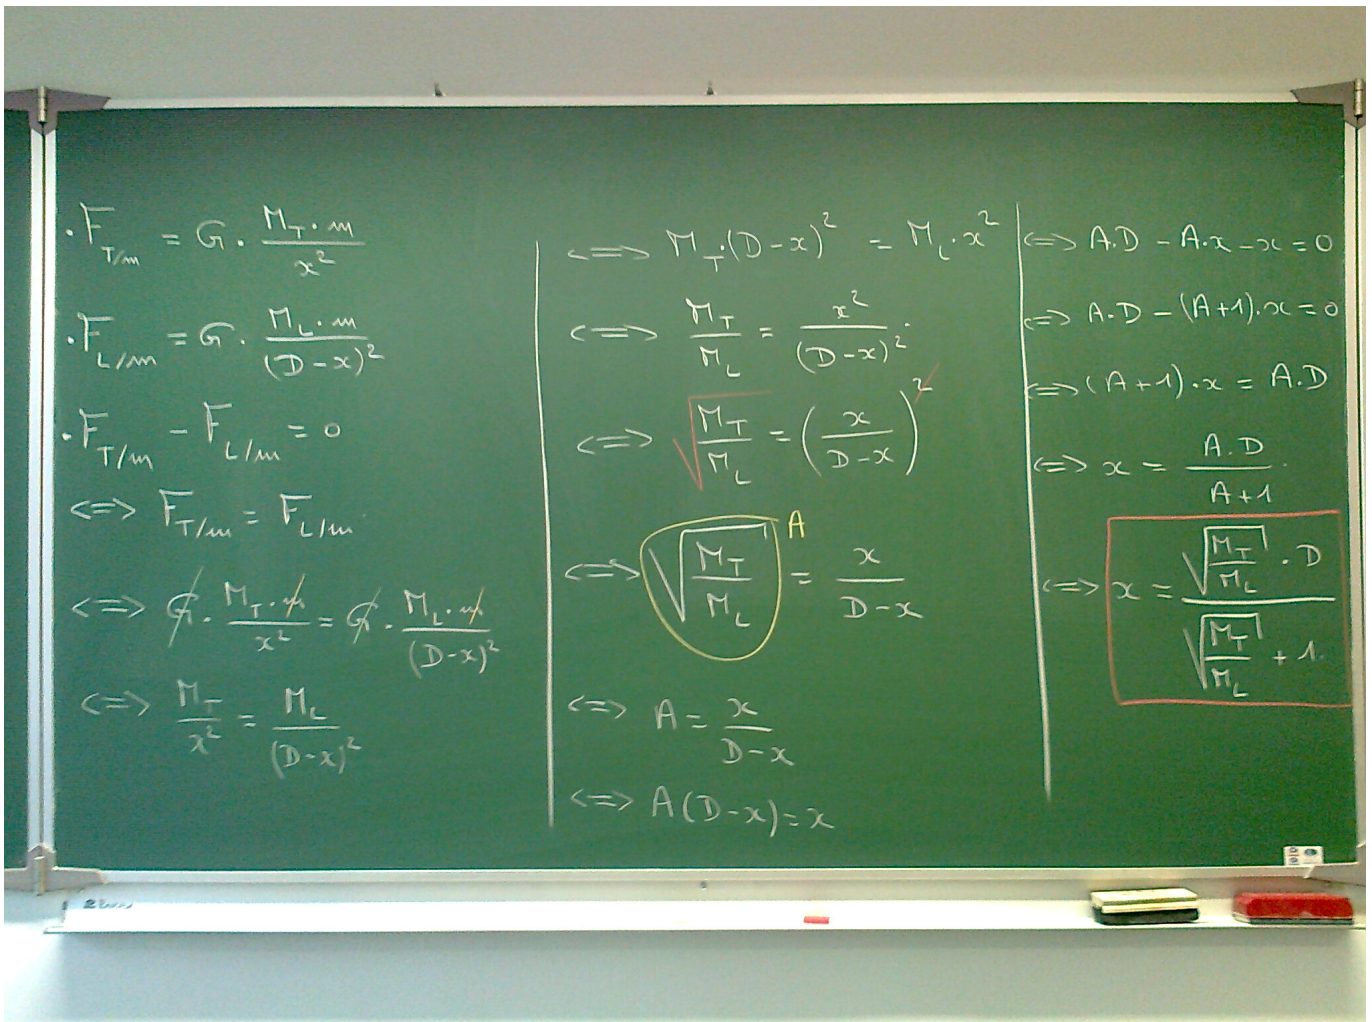 . F_{T/m} = G · \frac{M_T · m}{x²}
· F_{L/m} = G · \frac{M_L · m}{(D-x)²}
· F_{T/m} - F_{L/m} = 0
<=> F_{T/m} = F_{L/m}
<=> G · \frac{M_T · m}{x²} = G · \frac{M_L · m}{(D-x)²}
<=> \frac{M_T}{x²} = \frac{M_L}{(D-x)²}
<=> M_T · (D-x)² = M_L · x²
<=> \frac{M_T}{M_L} = \frac{x²}{(D-x)²}
<=> \sqrt{\frac{M_T}{M_L}} = (\frac{x}{D-x})²
<=> \sqrt{\frac{M_T}{M_L}} = \frac{x}{D-x} A
<=> A = \frac{x}{D-x}
<=> A(D-x) = x
<=> A.D - A.x - x = 0
<=> A.D - (A+1).x = 0
<=> (A+1).x = A.D
<=> x = \frac{A.D}{A+1}
<=> x = \frac{\sqrt{\frac{M_T}{M_L}} · D}{\sqrt{\frac{M_T}{M_L}} + 1}